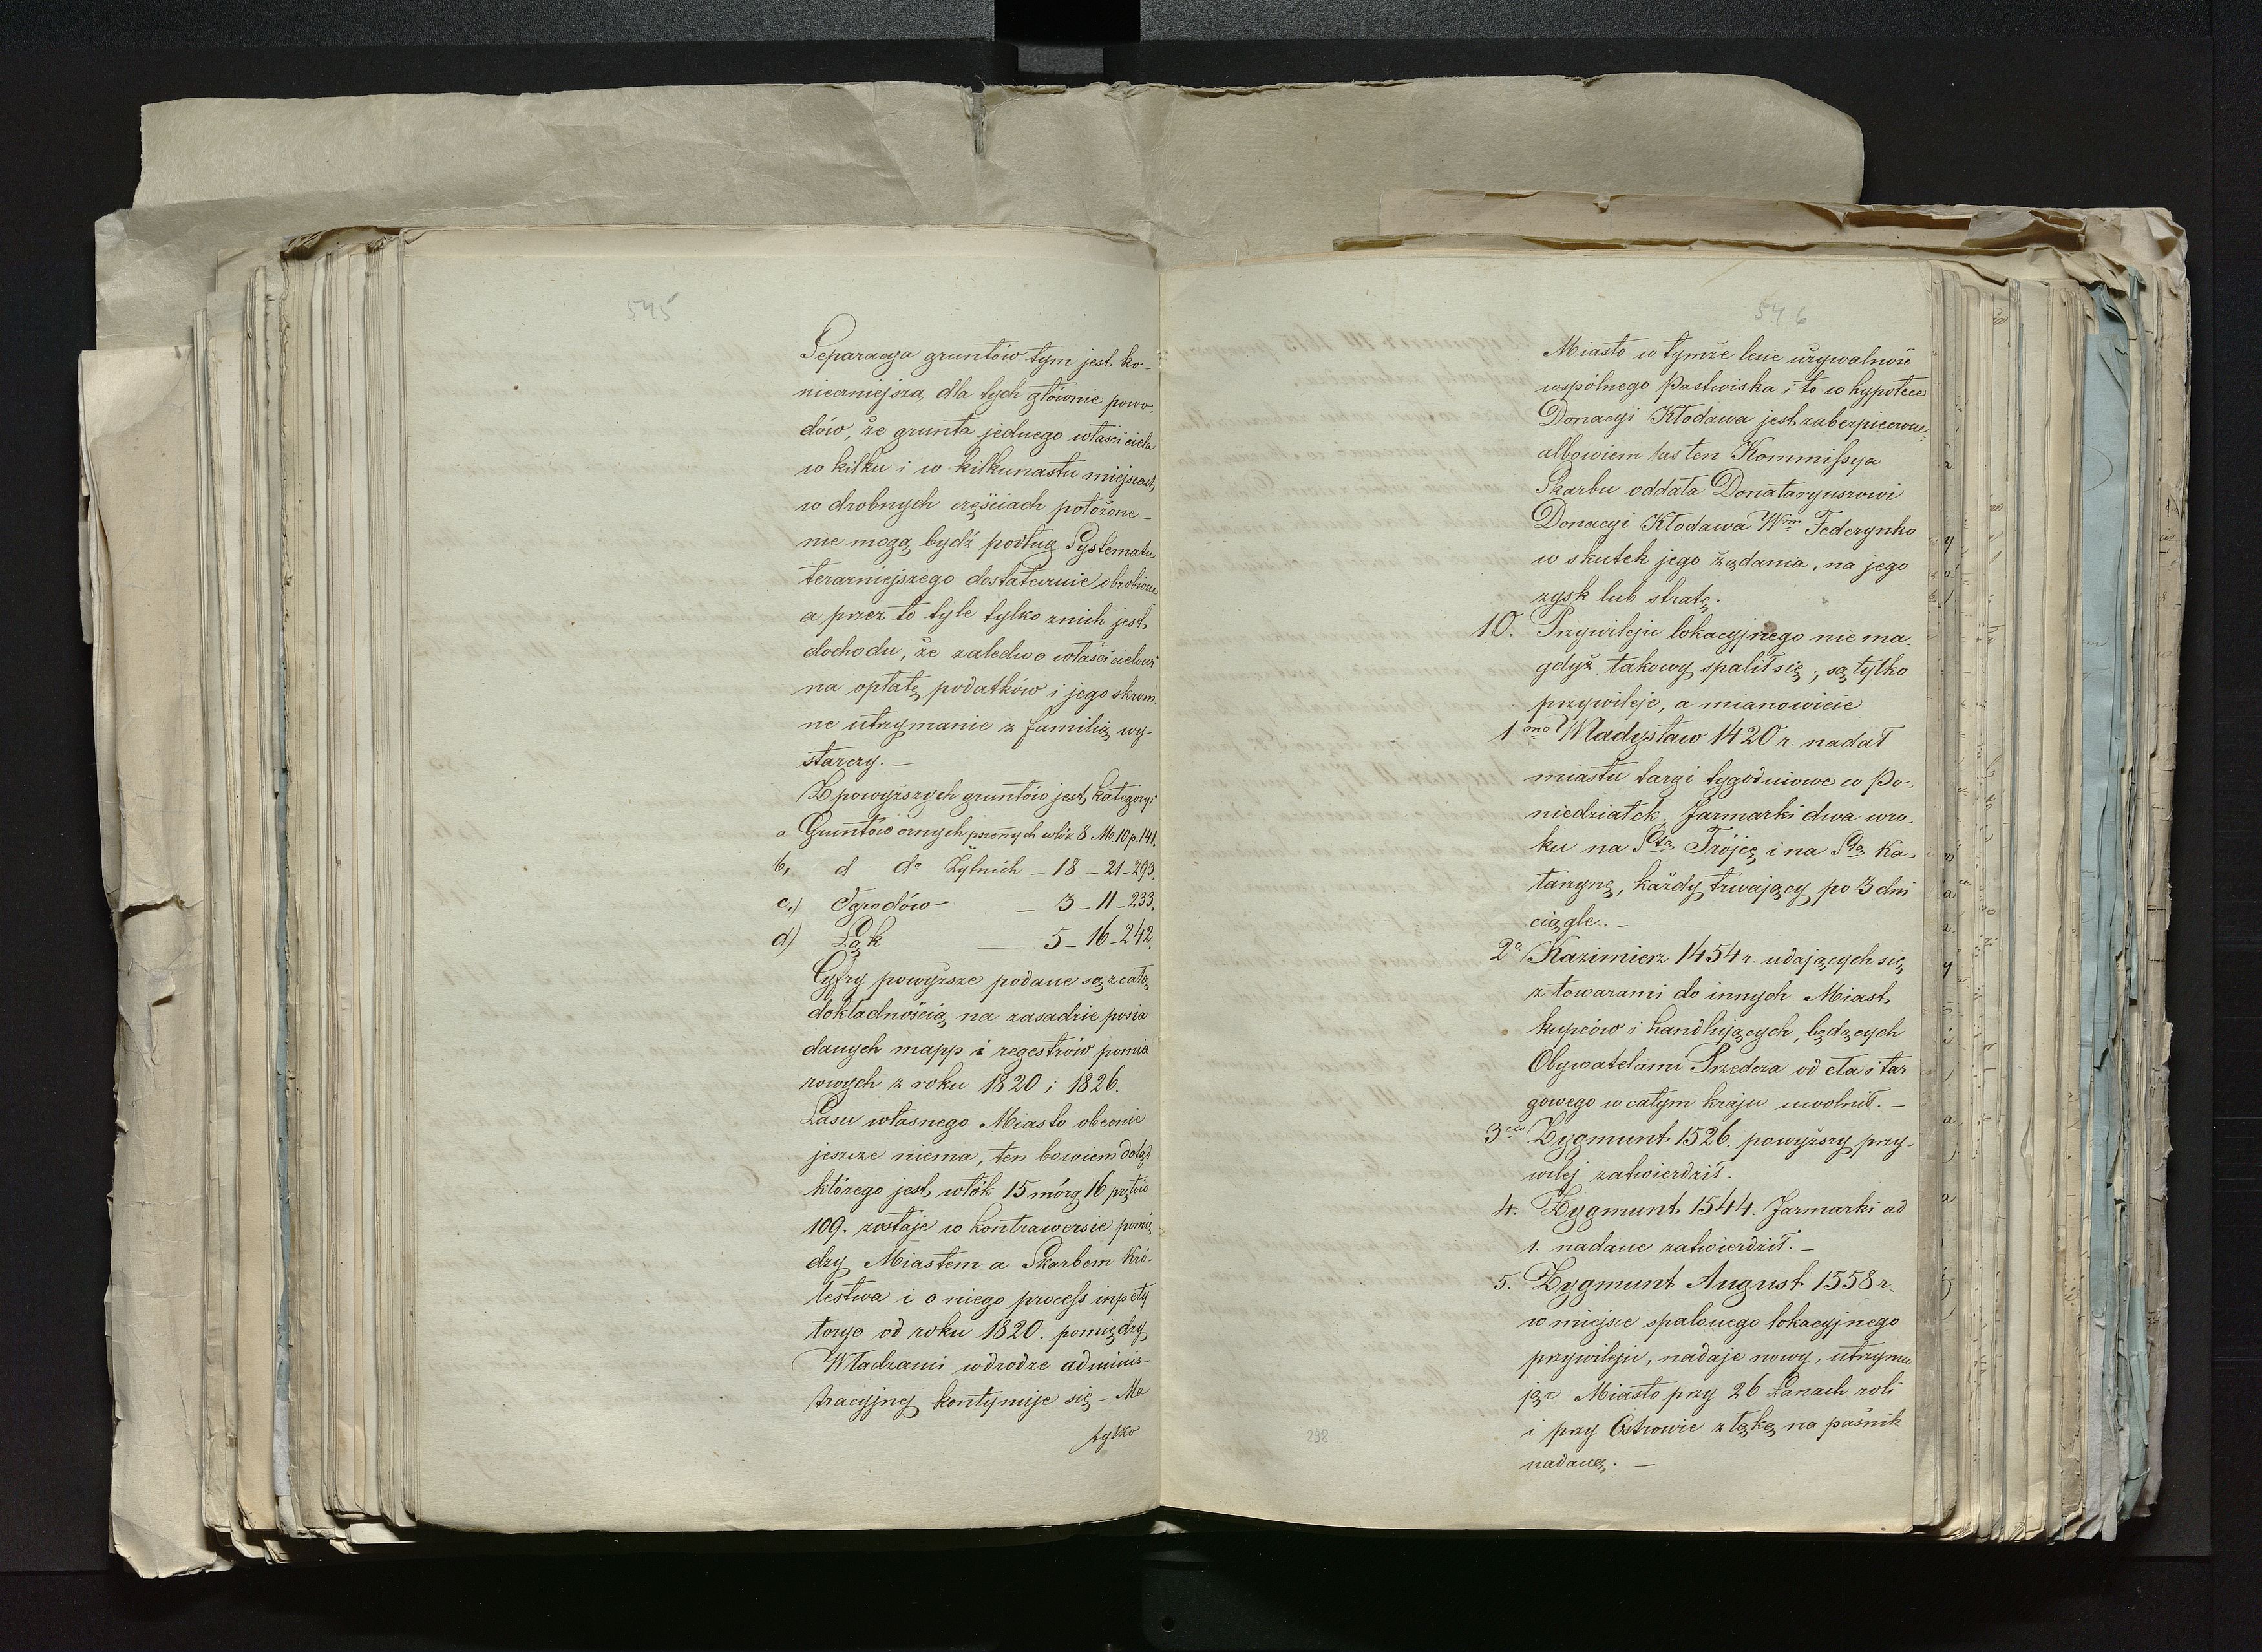 545
Separacya gruntów tym jest ko-
nieczniejsza, dla tych głównie powo-
dów, że grunta jednego właściciela
w kilku i w kilkunastu miejscach
w drobnych częściach położone –
nie mogą bydź podług Systematu
teraźniejszego dostatecznie obrobione
a przez to tyle tylko z nich jest
dochodu, że zaledwo właścicielowi
na opłatę podatków i jego skrom-
ne utrzymanie z familią wy-
starczy. –
Z powyższych gruntów jest kategoryi
a Gruntów ornych pszennych włók 8 M. 10 p. 141.
b, d do Żytnich – 18 – 21 – 293.
c.) Ogrodów – 3 – 11 – 233.
d) Łąk – 5 – 16 – 242.
Cyfry powyższe podane są z całą
dokładnością na zasadzie posia
danych mapp i regestrów pomia
rowych z roku 1820 i 1826.
Lasu własnego Miasto obecnie
jeszcze niema, ten bowiem dotąd
którego jest włók 15 mórg 16 prętów
109. zostaje w kontrawersie pomię
dzy Miastem a Skarbem Kró-
lestwa i o niego process inpety
toryo od roku 1820. pomiędzy
Władzami w drodze adminis-
tracyjnej kontynuje się – Ma
tylko
546
Miasto w tymże lesie używalność
wspólnego Pastwiska i to w hypotece
Donacyi Kłodawa jest zabezpieczone,
albowiem las ten Kommissya
Skarbu oddała Donataryuszowi
Donacyi Kłodawa Wmu Federynko
w skutek jego żądania, na jego
zysk lub stratę.
10. Przywileju lokacyjnego nie ma
gdyż takowy spalił się; są tylko
przywileje, a mianowicie
1mo Władysław 1420 r. nadał
miastu targi tygodniowe w Po-
niedziałek. Jarmarki dwa w ro-
ku na Stą Trójcę i na Stą Ka-
tarzynę, każdy trwający po 3 dni
ciągle. –
2o Kazimierz 1454 r. udających się
z towarami do innych Miast
kupców i handlujących, będących
Obywatelami Przedcza od cła i tar
gowego w całym kraju uwolnił. –
3cio Zygmunt 1526. powyższy przy-
wilej zatwierdził.
4. Zygmunt 1544. Jarmarki ad
1. nadane zatwierdził. –
5. Zygmunt August 1558 r.
w miejsce spalonego lokacyjnego
przywileju, nadaje nowy, utrzymu
jąc Miasto przy 26 Łanach roli
i przy Ostrowie z łąką na paśnik
nadaną. –
298